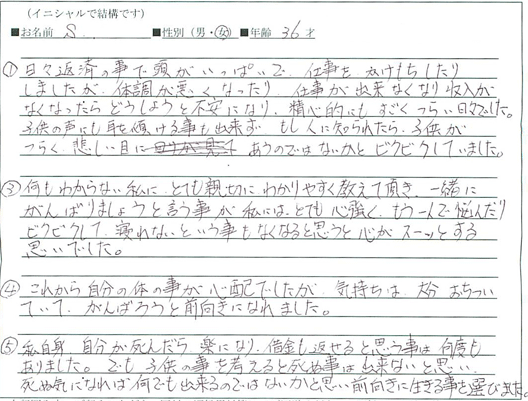 (イニシャルで結構です)
■お名前 S. ■性別(男・女)■年齢 36才
① 日々返済の事で頭がいっぱいで、仕事を かけもちしたり
しましたが、体調が悪くなったり 仕事が出来なくなり収入が
なくなったらどうしようと不安になり、精心的にもすごくつらい日々でした。
子供の声にも耳を傾ける事も出来ず もし人に知られたら、子供が
つらく悲しい目に あうのではないかとビクビクしていました。
③ 何もわからない私に、とても親切にわかりやすく教えて頂き、一緒に
がんばりましょうと言う事が私には、とても心強く、もう一人で悩んだり
ビクビクして、寝れないという事もなくなると思うと心がスーッとする
思いでした。
④ これから自分の体の事が心配でしたが、気持ちは 大分 おちつい
ていて、がんばろうと前向きになれました。
⑤ 私自身 自分が死んだら 楽になり、借金も返せると思う事は何度も
ありました。でも 子供の事を考えると死ぬ事は出来ないと思い、
死ぬ気になれば何でも出来るのではないかと思い前向きに生きる事を選びました。